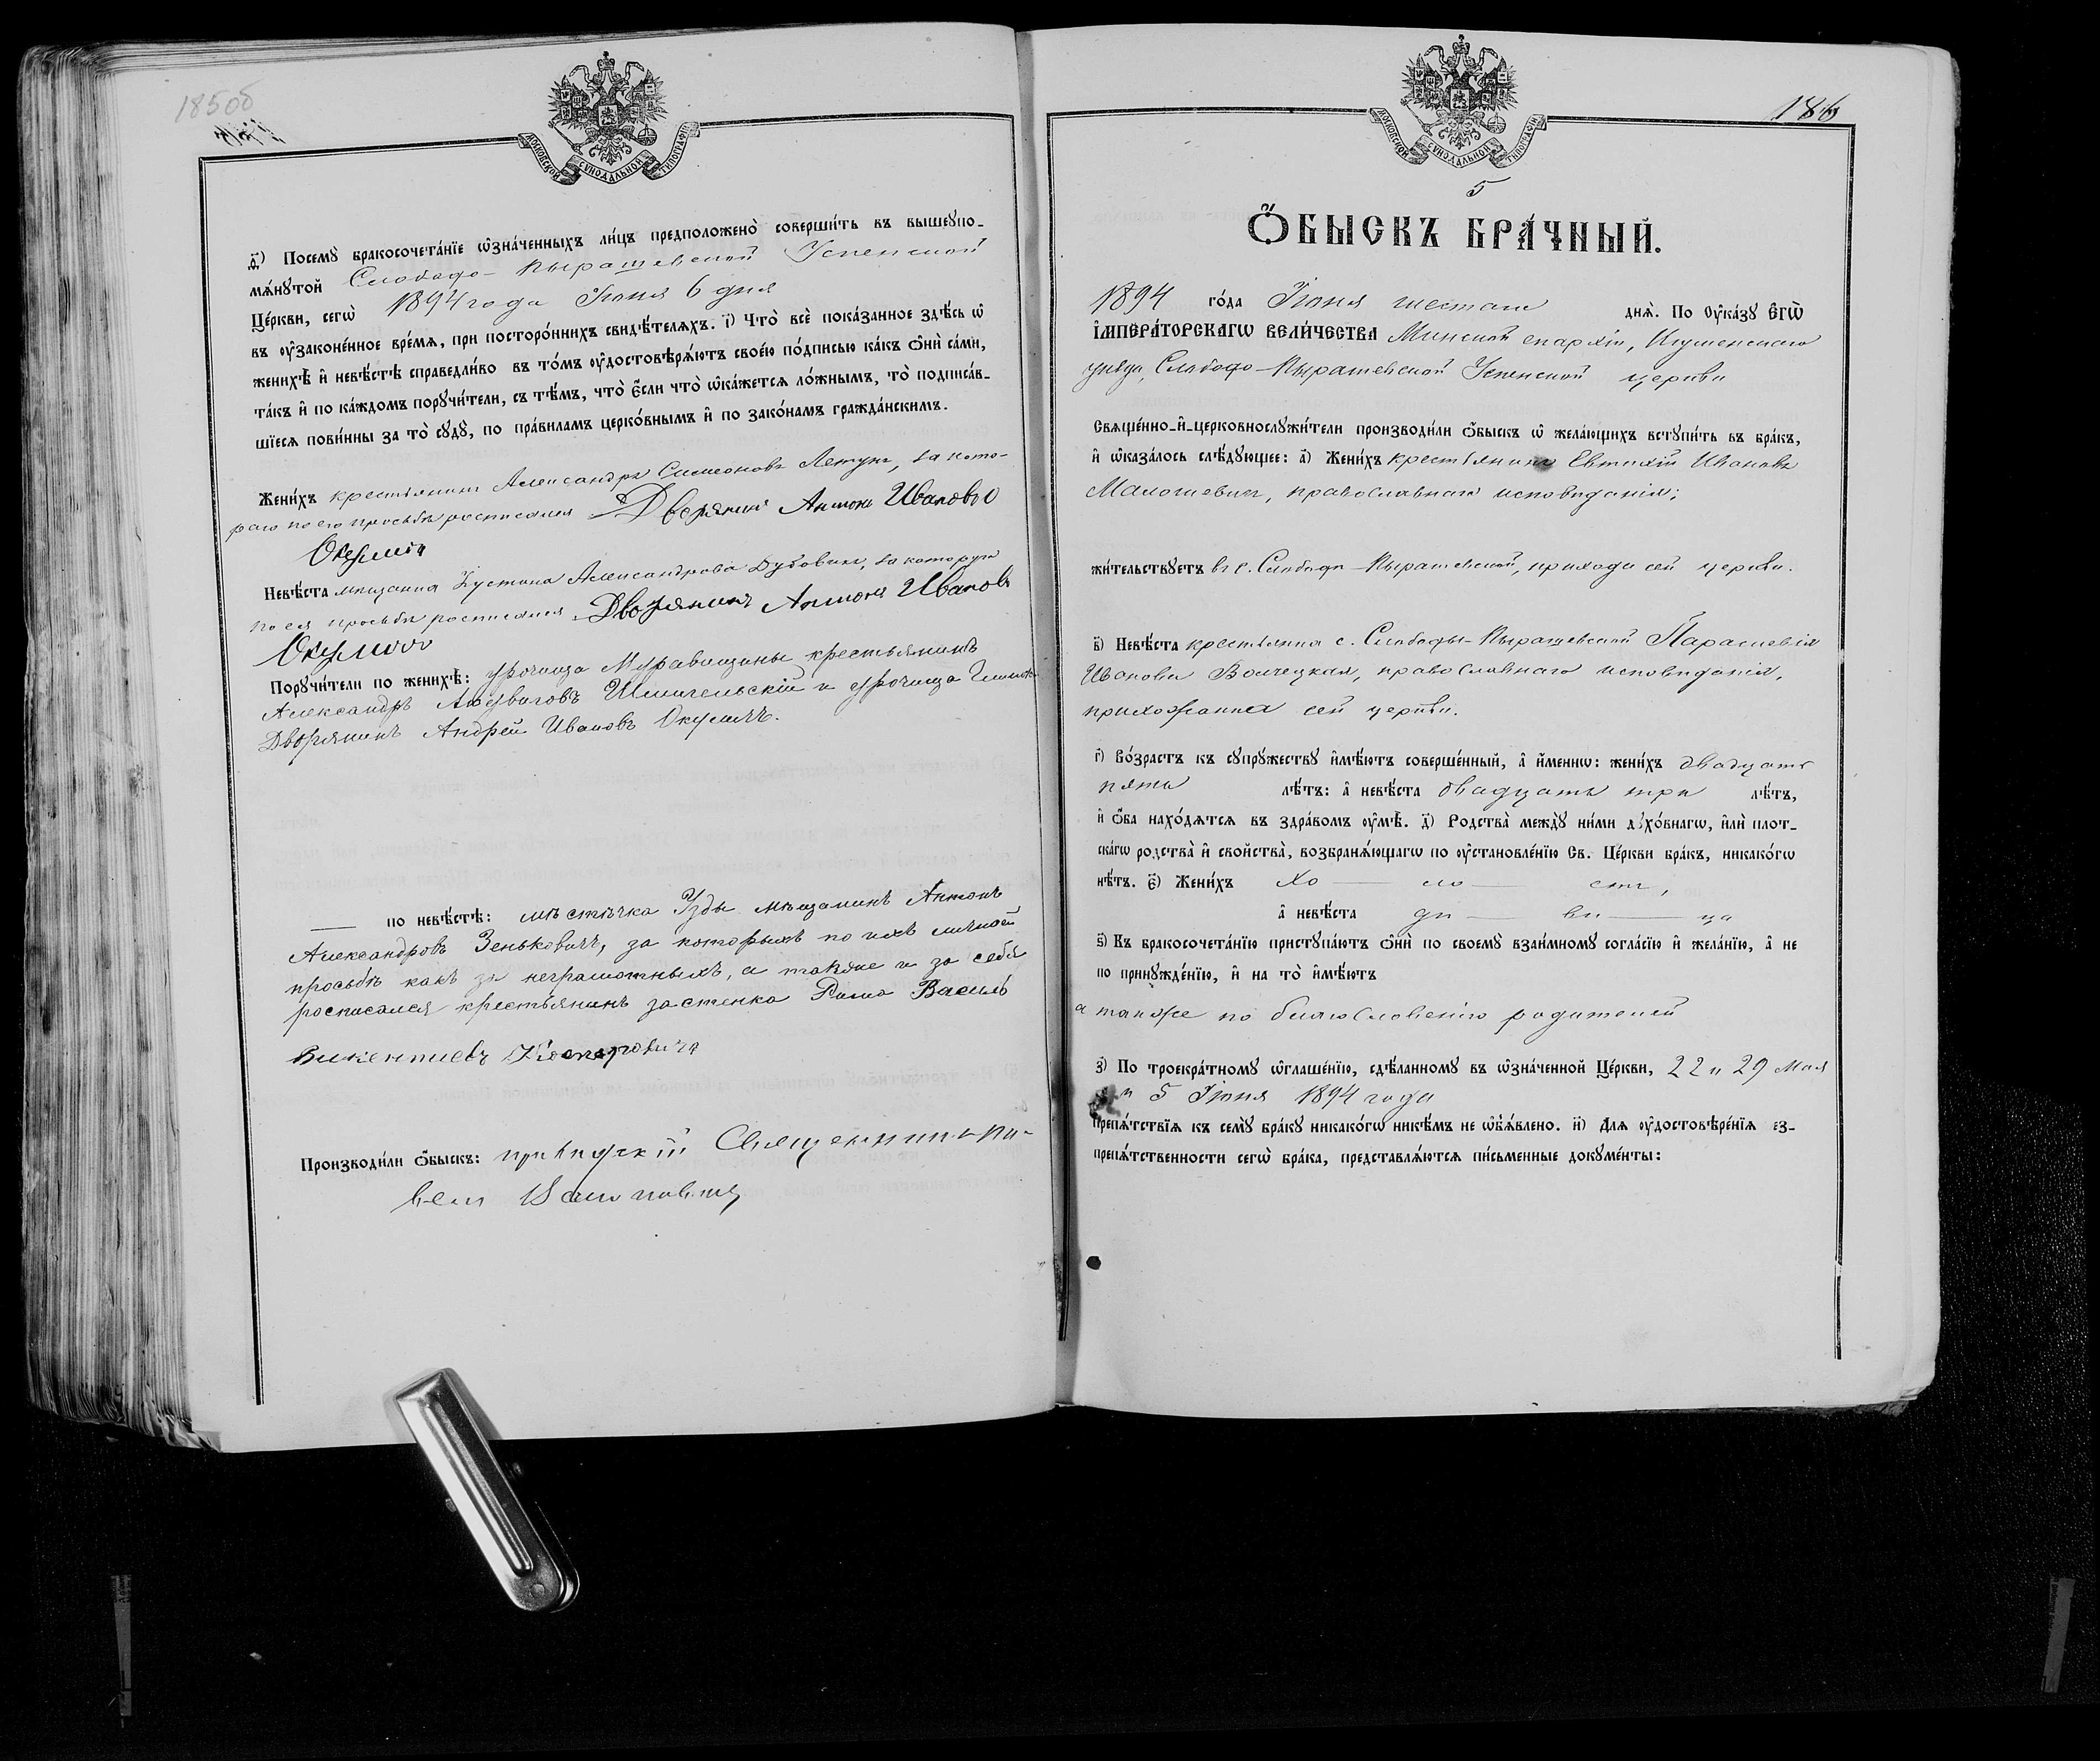 185об
МОСКОВСКОЙ СѴНОДАЛЬНОЙ ТИПОГРАФІИ
д҃) Посемꙋ̀ бракосочета́нїе ѡ҆зна́ченныхъ ли́цъ предположено̀ соверши́ть въ вышеꙋпо-
мѧ́нꙋтой Слободо-Пырашевской Успенской
Це́ркви, сегѡ̀ 1894 года Іюня 6 дня
въ ᲂу҆законе́нное вре́мѧ, при посторо́ннихъ свидѣ́телѧхъ. і҃) Что̀ всѐ пока́занное здѣ́сь ѡ҆
женихѣ̀ и҆ невѣ́стѣ справедли́во въ то́мъ ᲂу҆достовѣрѧ́ютъ свое́ю по́дписью ка́къ ѻ҆нѝ са́ми,
та́къ и҆ по ка́ждомъ порꙋчи́тели, съ тѣ́мъ, что̀ є҆́сли что̀ ѡ҆ка́жетсѧ ло́жнымъ, то̀ подписа́в-
шїесѧ пови́нны за то̀ сꙋдꙋ̀, по пра́виламъ церко́внымъ и҆ по зако́намъ гражда́нскимъ.
Жени́хъ крестьянинъ Александръ Симеоновъ Летунъ, за кото-
раго по его просьбѣ росписался Дворянинъ Антонъ Ивановъ
Окуличъ
Невѣ́ста мѣщанка Іустина Александрова Дубовикъ, за которую
по ея просьбѣ росписался Дворянинъ Антонъ Ивановъ
Окуличъ
Порꙋчи́тели по женихѣ̀: урочища Муравщины крестьянинъ
Александръ Людвиговъ Шмигельскій и урочища
Дворянинъ Андрей Ивановъ Окуличъ.
по невѣ́стѣ: мѣстечка Узды мѣщанинъ Антонъ
Александровъ Зеньковичъ, за которыхъ по ихъ личной
просьбѣ какъ за неграмотныхъ, а также и за себя
росписался крестьянинъ застенка Василь
Викентиевъ Каспаровичъ
Производи́ли ѻ҆́быскъ: приходскій Священникъ Па-
велъ
186
МОСКОВСКОЙ СѴНОДАЛЬНОЙ ТИПОГРАФІИ
5
Ѻ҆́БЫСКЪ БРА́ЧНЫЙ.
1894 го́да Іюня шестаго днѧ̀. По Оу҆ка́зꙋ Є҆гѡ̀
І҆мпера́торскагѡ Вели́чества Минской епархіи, Игуменскаго
уѣзда, Слободо-Пырашевской Успенской церкви
Свѧще́нно-и҆-церковнослꙋжи́тели производи́ли ѻ҆́быскъ ѡ҆ жела́ющихъ встꙋпи́ть въ бра́къ,
и҆ ѡ҆каза́лось слѣ́дꙋющее: а҃) Жени́хъ крестьянинъ Евтихій Ивановъ
Малошевичъ, православнаго исповѣданія;
жи́тельствꙋетъ въ с. Слободѣ-Пырашевской, прихода сей церкви.
в҃) Невѣ́ста крестьянка с. Слободы-Пырашевской Параскевія
Иванова Волчецкая, православнаго исповѣданія,
прихожанка сей церкви.
г҃) Во́зрастъ къ сꙋпрꙋ́жествꙋ и҆мѣ́ютъ соверше́нный, а҆ и҆́меннѡ: жени́хъ двадцать
пять лѣ́тъ: а҆ невѣ́ста двадцать три лѣ́тъ,
и҆ ѻ҆́ба нахо́дѧтсѧ въ здра́вомъ ᲂу҆мѣ̀. д҃) Родства̀ междꙋ̀ ни́ми дꙋхо́внагѡ, и҆лѝ плот-
ска́гѡ родства̀ и҆ свойства̀, возбранѧ́ющагѡ по ᲂу҆становле́нїю Св. Це́ркви бра́къ, никако́гѡ
нѣ́тъ. є҃) Жени́хъ хо — ло — стъ,
а҆ невѣ́ста дѣ — ви — ца
ѕ҃) Въ бракосочета́нїю пристꙋпа́ютъ ѻ҆нѝ по своемꙋ̀ взаи́мномꙋ согла́сїю и҆ жела́нїю, а҆ не
по принꙋжде́нїю, и҆ на то̀ и҆мѣ́ютъ
а также по благословенію родителей
з҃) По троекра́тномꙋ ѡ҆глаше́нїю, сдѣ́ланномꙋ въ ѡ҆зна́ченной Це́ркви, 22 и 29 Мая
и 5 Іюня 1894 года
препѧ́тствїѧ къ семꙋ̀ бра́кꙋ никако́гѡ никѣ́мъ не ѡ҆б̾ѧ́влено. и҃) Длѧ ᲂу҆достовѣре́нїѧ ез-
препѧ́тственности сегѡ̀ бра́ка, представлѧ́ютсѧ пи́сьменные докꙋме́нты: